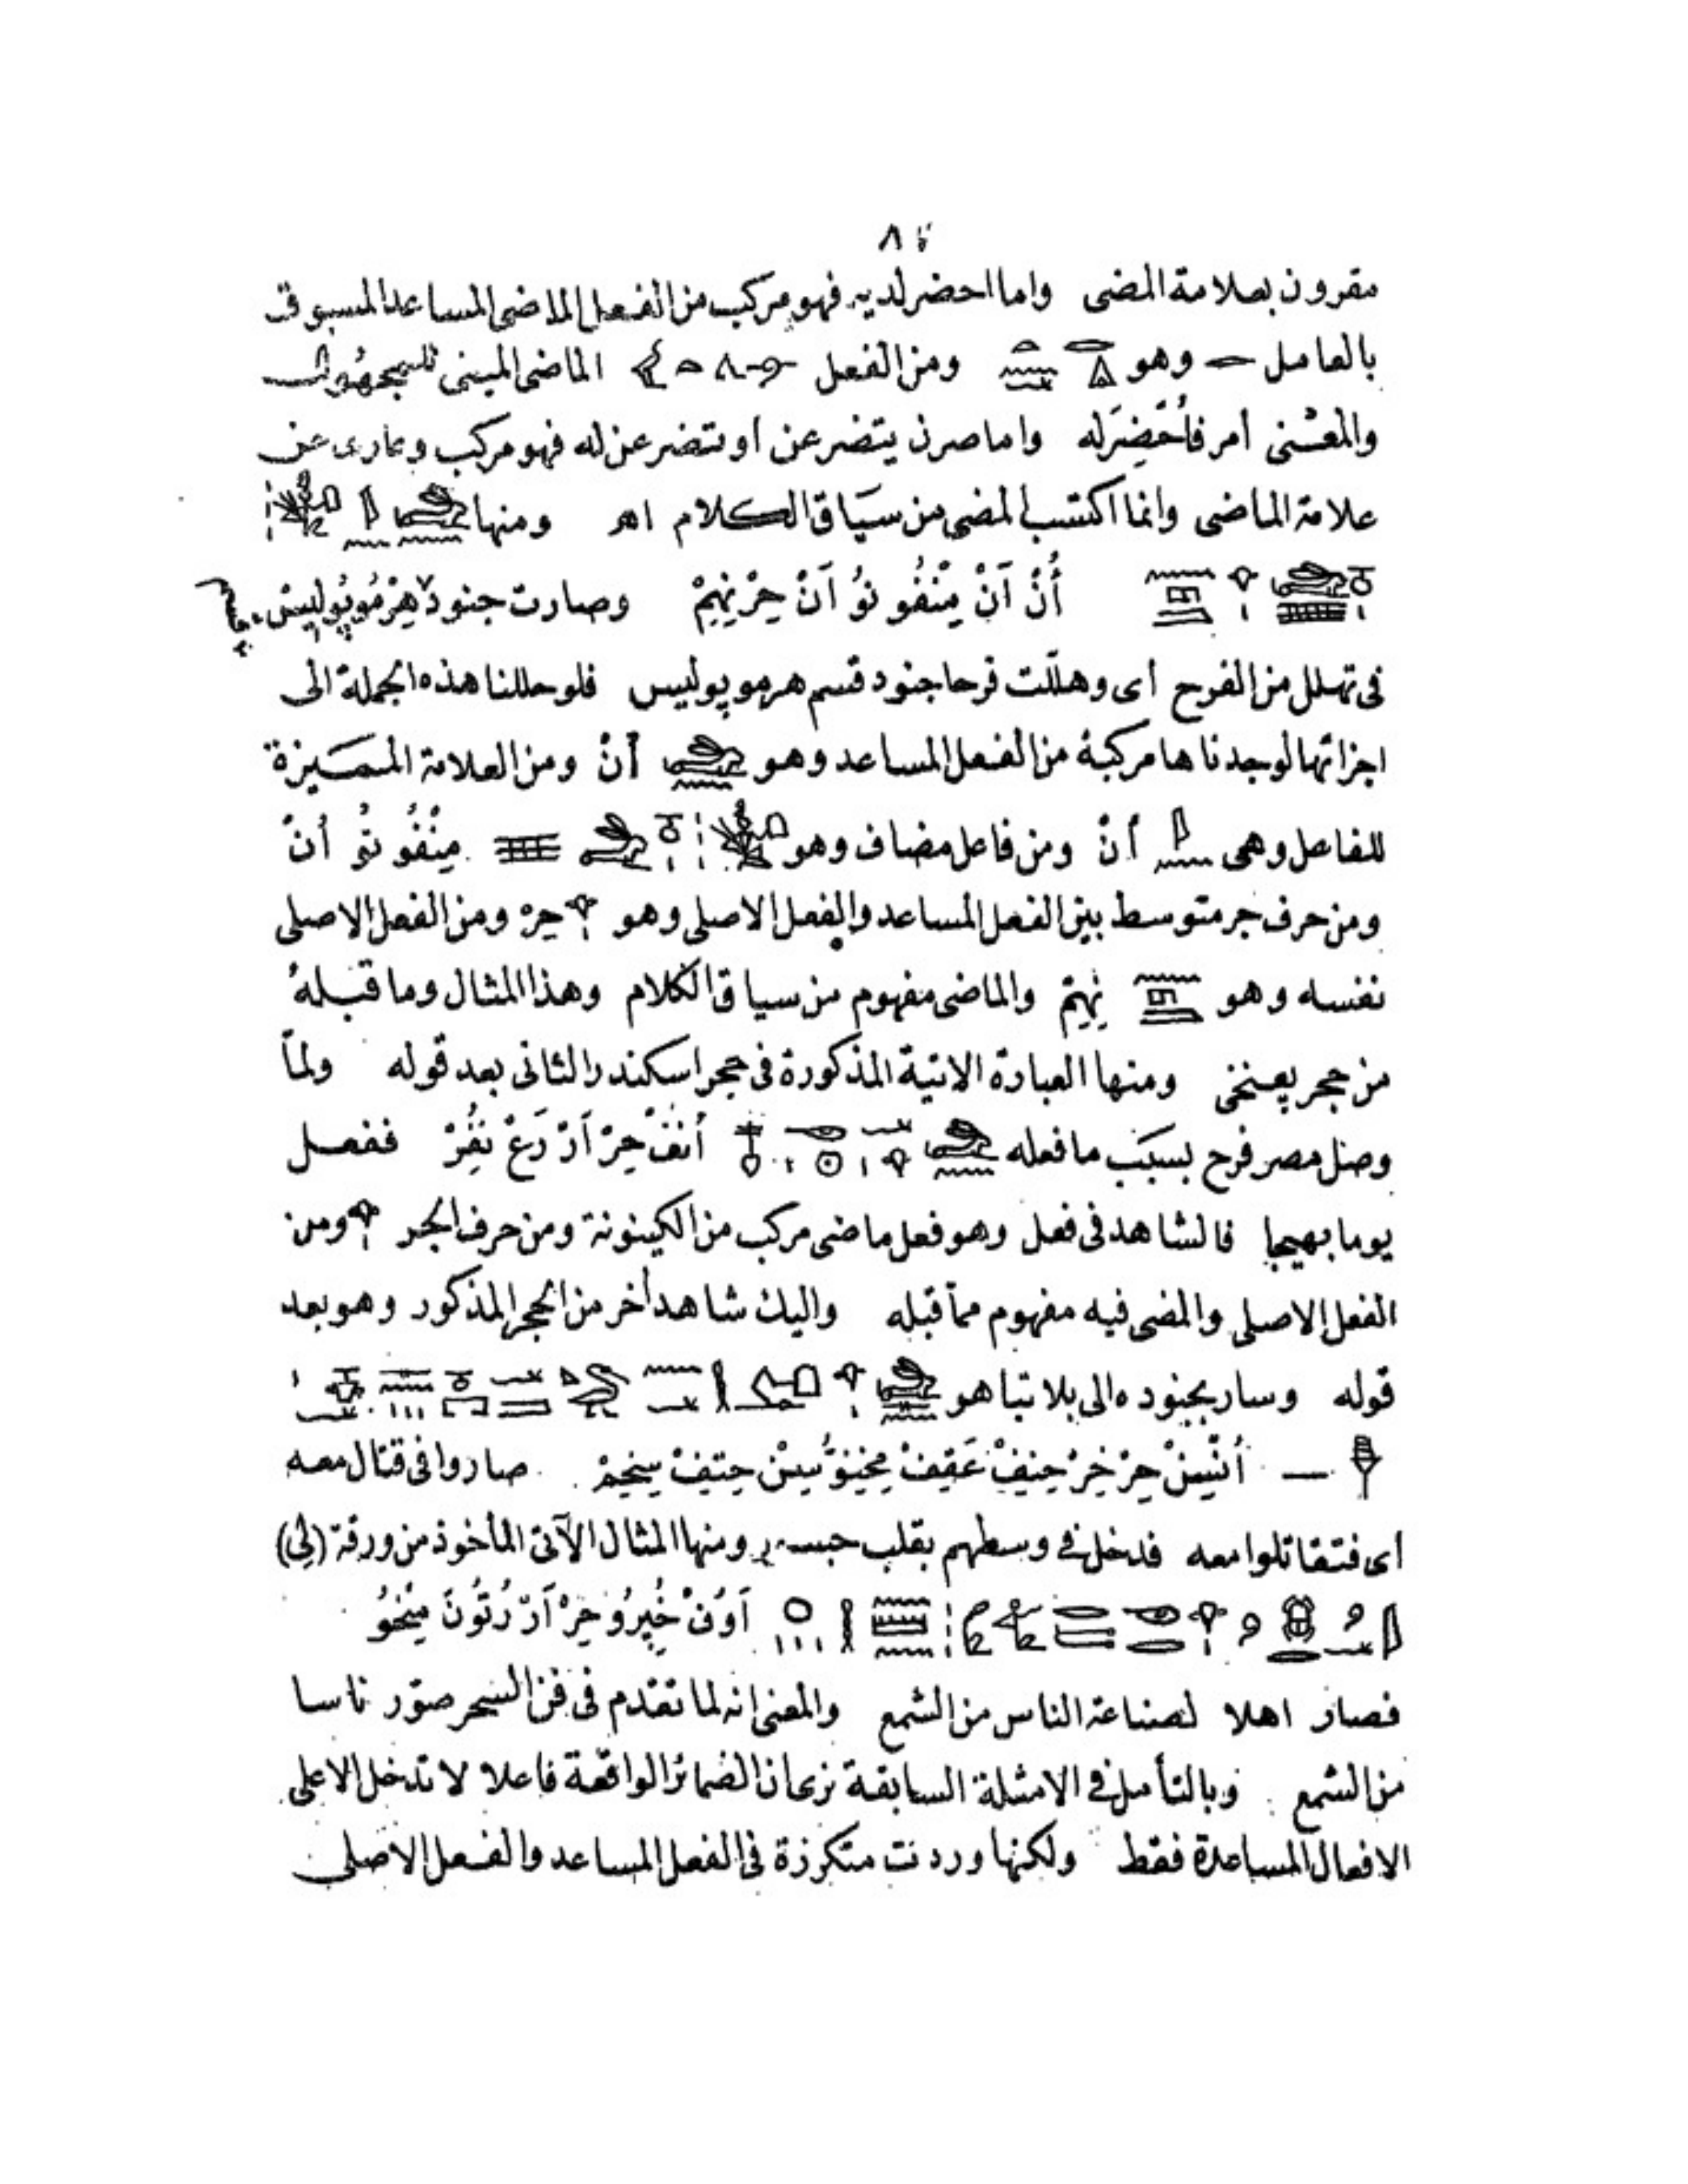 مقرون بعلامة المضى واما احضر لديه فهو مركب من الفعل الماضى المساعد المسبوق
بالعامل وهو ومن الفعل الماضى المبنى للمجهول
والمعنى أمر فأحضر له واما صرن يتضرعن أو تتضرعن له فهو مركب وعارى عن
علامة الماضى وانما اكتسب المضى من سياق الكلام اهـ ومنها
أُنْ آنْ مِنْفُو نُو آنْ حِرْ نِهِمْ وصارت جنود هِرْمُوپُوليس
فى تهلل من الفرح أى وهللت فرحا جنود قسم هرموپوليس فلو حللنا هذه الجملة الى
اجزائها لوجدناها مركبة من الفعل المساعد وهو أن ومن العلامة المميزة
للفاعل وهى أن ومن فاعل مضاف وهو مِنْفُو نُو أن
ومن حرف جر متوسط بين الفعل المساعد والفعل الاصلى وهو حِرْ ومن الفعل الاصلى
نفسه وهو نِهِمْ والماضى مفهوم من سياق الكلام وهذا المثال وما قبله
من حجر پعنخى ومنها العبارة الاتية المذكورة فى حجر اسكندر الثانى بعد قوله ولما
وصل مصر فرح بسبب ما فعله أُنِفْ حِرْ آرْ رَعْ نِفِرْ ففعل
يوما بهيجا فالشاهد فى فعل وهو فعل ماضى مركب من الكينونة ومن حرف الجر ومن
الفعل الاصلى والمضى فيه مفهوم مما قبله واليك شاهد أخر من الحجر المذكور وهو بعد
قوله وسار بجنوده الى بلاد تباهو
أُنْسِنْ حِرْ خِرْ حِنِفْ عَقِفْ صاروا فى قتال معه
اى فتقاتلوا معه فدخل فى وسطهم بقلب ومنها المثال الآتى المأخوذ من ورقة (لى)
آوُفْ خِپِرُو حِرْ آرْ
فصار اهلا لصناعة الناس من الشمع والمعنى انه لما تقدم فى فن السحر صوّر ناسا
من الشمع وبالتأمل فى الامثلة السابقة نرى ان الضمائر الواقعة فاعلا لا تدخل الا على
الافعال المساعدة فقط ولكنها وردت متكررة فى الفعل المساعد والفعل الاصلى